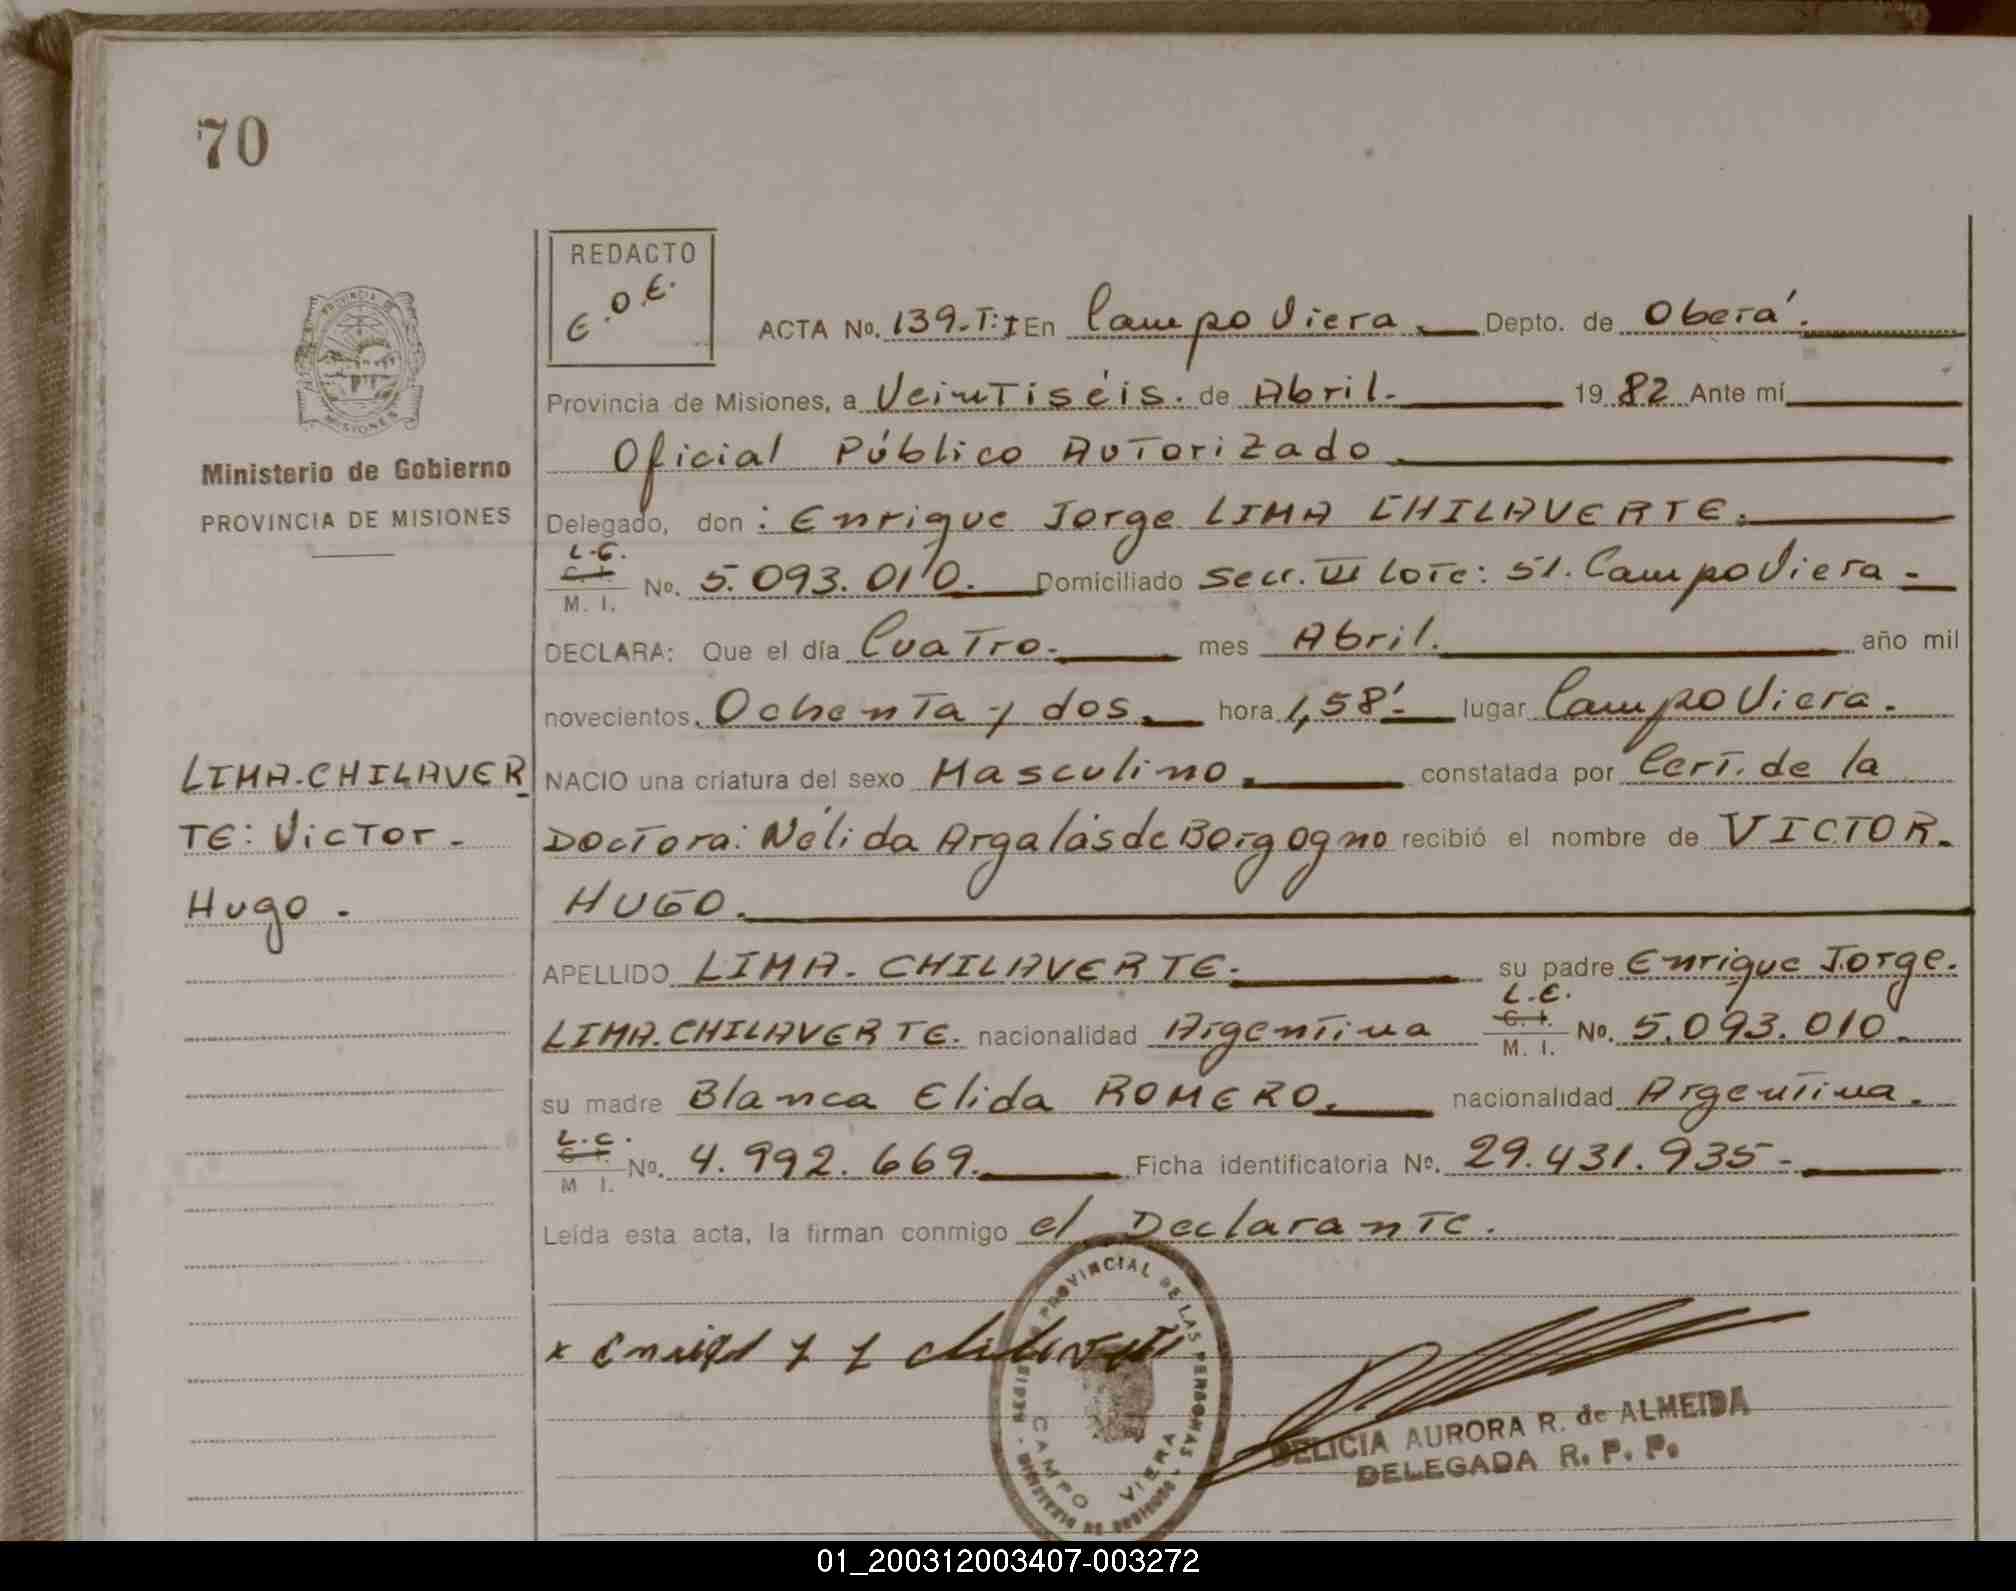 70
REDACTO
E.O.E.
ACTA No. 139.T:I En Campo Viera. Depto. de Oberá.
Provincia de Misiones, a Veintiséis. de Abril. 1982 Ante mí
Oficial Público Autorizado
Delegado, don: Enrique Jorge LIMA CHILAVERTE.
L.E.
C. I.
M. I. No. 5.093.010. Domiciliado Secc. III Lote: 51. Campo Viera.
DECLARA: Que el día Cuatro. mes Abril. año mil
novecientos, Ochenta y dos. hora 1,58' lugar Campo Viera.
NACIO una criatura del sexo Masculino. constatada por Cert. de la
Doctora: Nélida Argalás de Borgogno recibió el nombre de VICTOR.
HUGO.
APELLIDO LIMA. CHILAVERTE. su padre Enrique Jorge.
LIMA. CHILAVERTE. nacionalidad Argentina L.E. C. I. M. I. No. 5.093.010.
su madre Blanca Elida ROMERO. nacionalidad Argentina.
L.C.
C. I.
M. I. No. 4.992.669. Ficha identificatoria No. 29.431.935-
Leída esta acta, la firman conmigo el Declarante.
PROVINCIA DE MISIONES
Ministerio de Gobierno
PROVINCIA DE MISIONES
LIMA-CHILAVER
TE: Victor.
Hugo.
REGISTRO PROVINCIAL DE LAS PERSONAS
CAMPO VIERA
DELICIA AURORA R. de ALMEIDA
DELEGADA R. P. P.
01_200312003407-003272